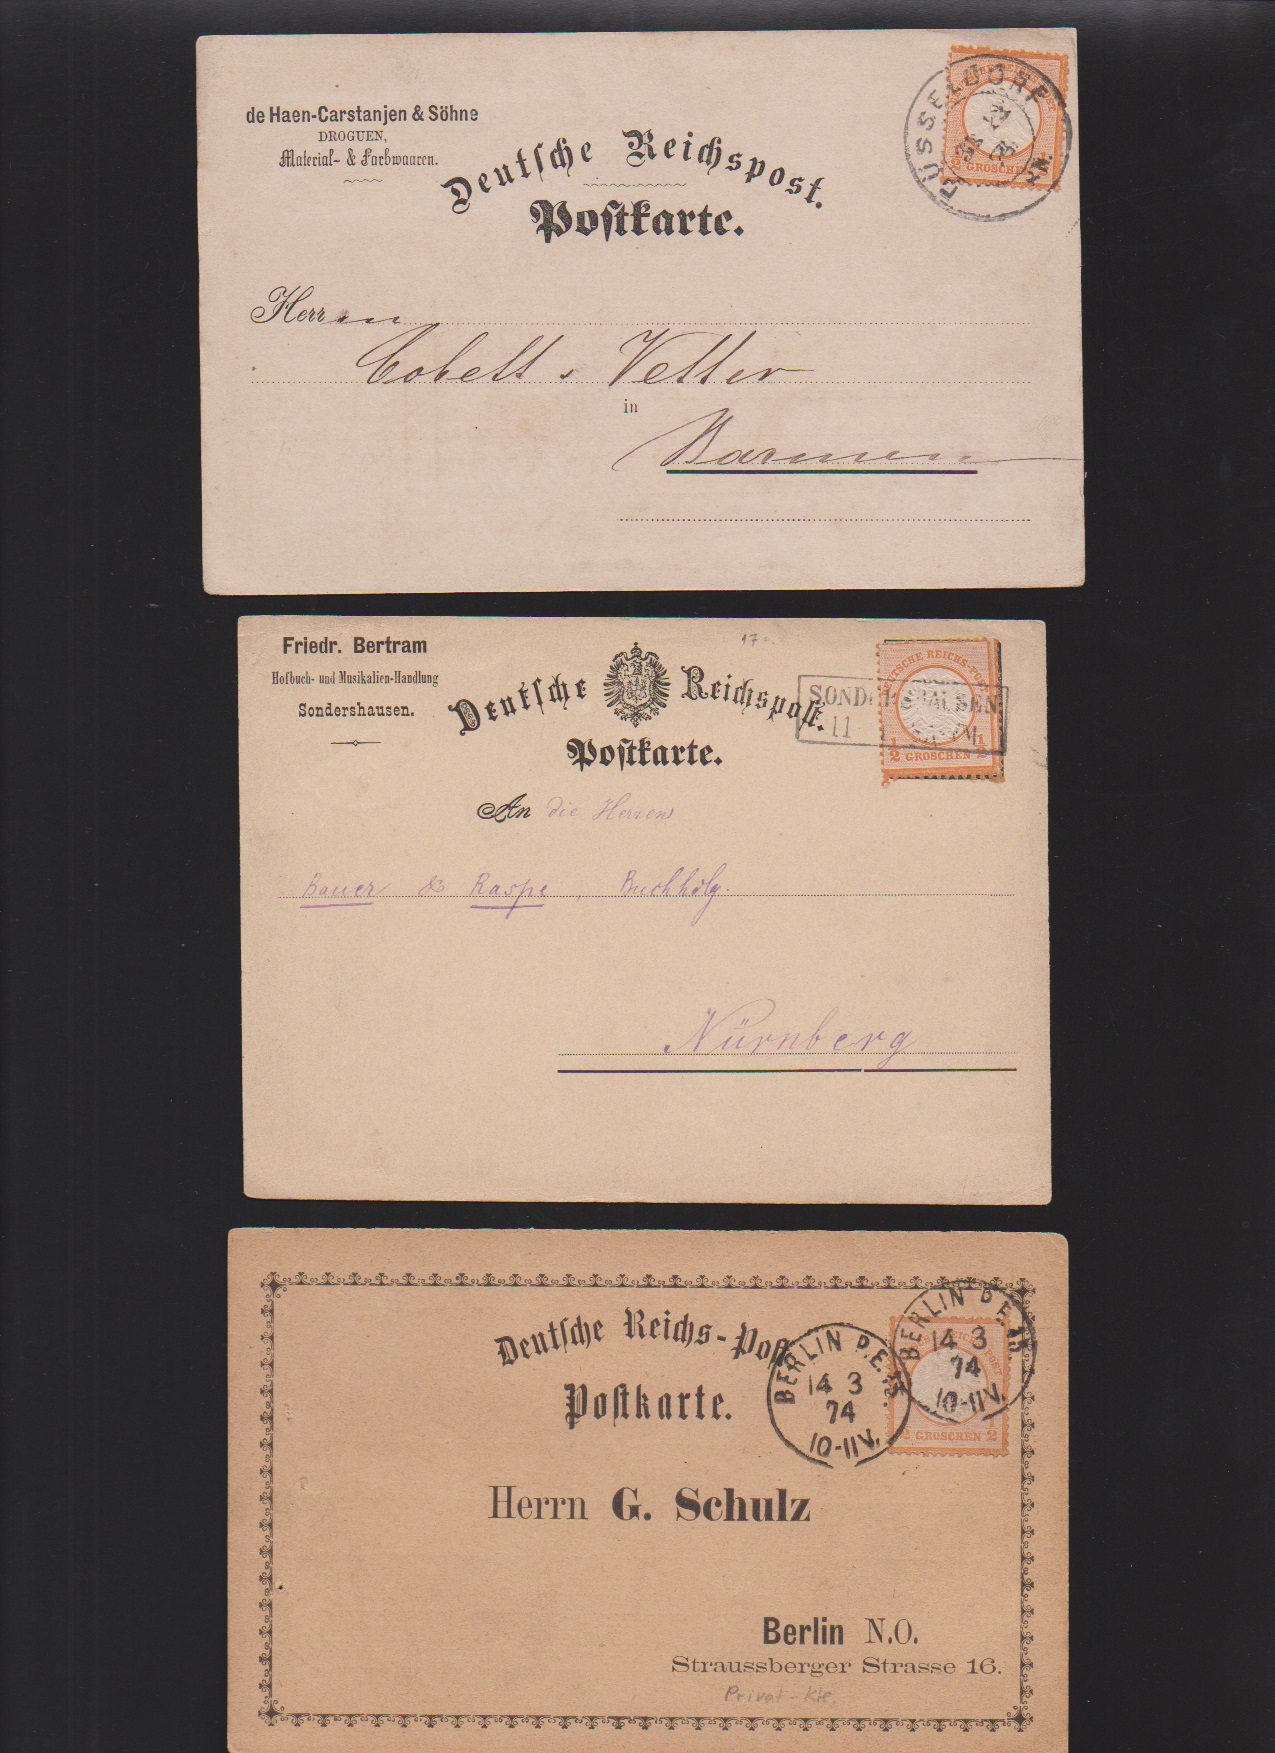 de Haen-Carstanjen & Söhne
DROGUEN,
Material- & Farbwaaren.
Deutsche Reichspost.
Postkarte.
DÜSSELDORF
1/2 GROSCHEN
Herren
Cobelt & Vetter
in
Barmen
Friedr. Bertram
Hofbuch- und Musikalien-Handlung
Sondershausen.
17
Deutsche Reichspost.
Postkarte.
DEUTSCHE REICHS-POST
1/2 GROSCHEN 1/2
SONDERSHAUSEN
11
An die Herren
Bauer & Raspe, Buchhdlg.
Nürnberg
Deutsche Reichs-Post
Postkarte.
BERLIN P.E.
14 3
74
10-11V.
BERLIN P.E.
14 3
74
10-11V.
GROSCHEN 1/2
Herrn G. Schulz
Berlin N.O.
Straussberger Strasse 16.
Privat-Kte.